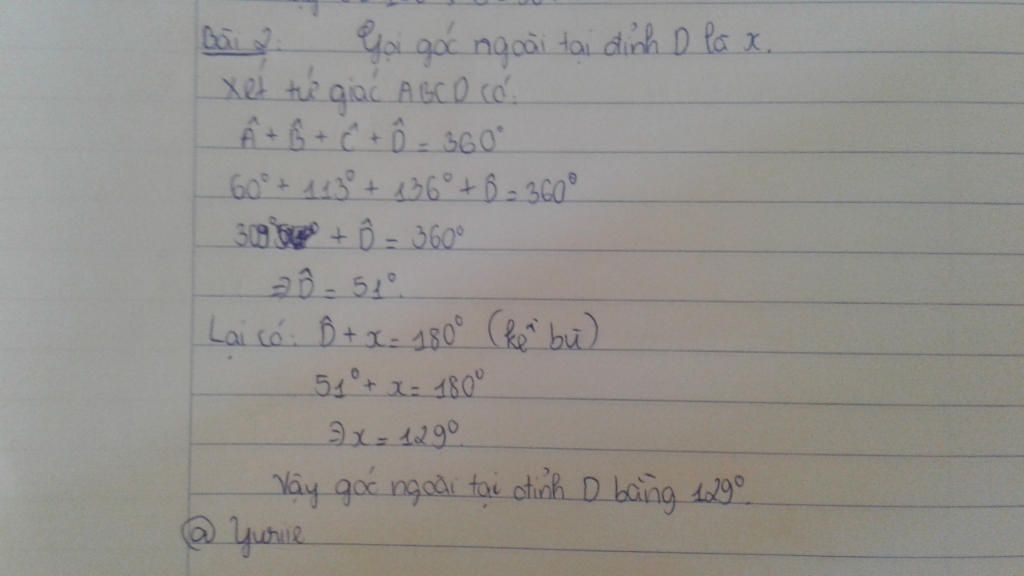 Bài 2: Gọi góc ngoài tại đỉnh D là x.
Xét tứ giác ABCD có:
Â + B̂ + Ĉ + D̂ = 360°
60° + 113° + 136° + D̂ = 360°
309° + D̂ = 360°
⇒ D̂ = 51°.
Lại có: D̂ + x = 180° (kề bù)
51° + x = 180°
⇒ x = 129°.
Vậy góc ngoài tại đỉnh D bằng 129°.
@ Yuriie